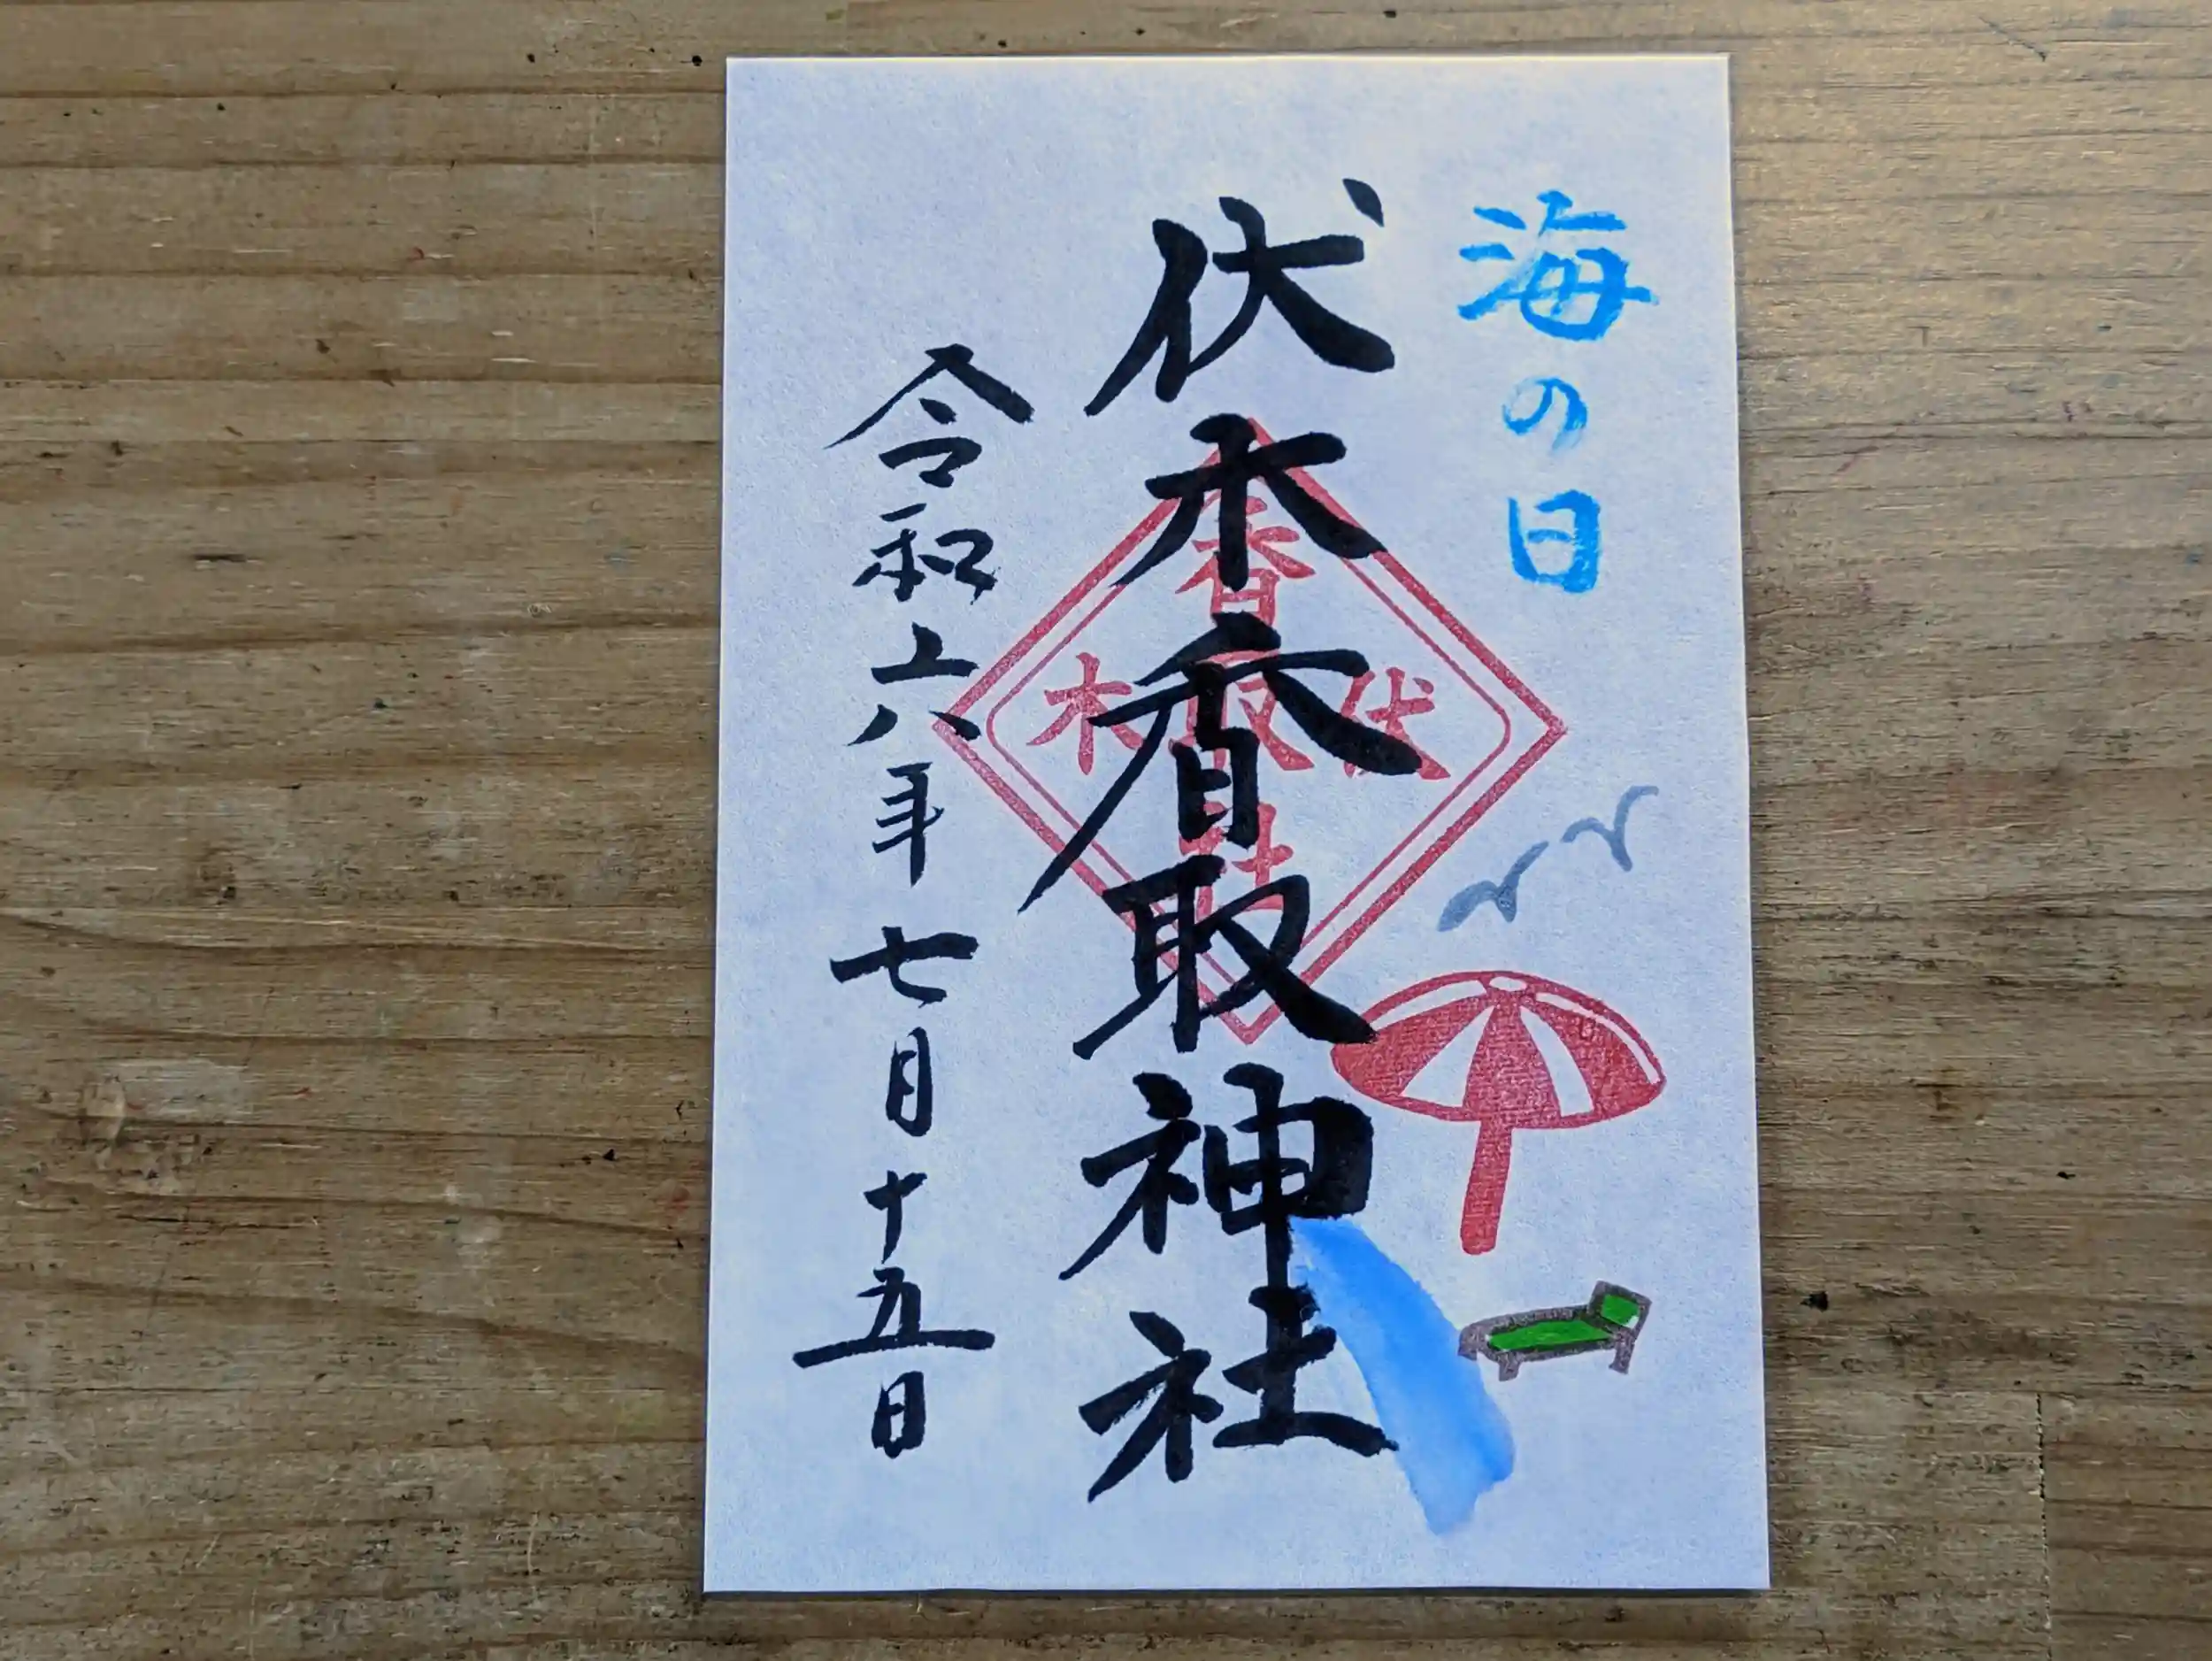 海の日
伏木香取神社
香取社
伏木
令和六年七月十五日